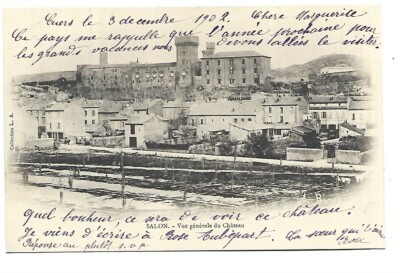 Cuers le 3 décembre 1902. Chère Marguerite
Ce pays me rappelle que l'année prochaine pour
les grands vacances nous devons allées le visiter
Collection L. A.
SALON. - Vue générale du Château
Quel bonheur, ce sera de voir ce château.
Je viens d'écrire à Rose
Réponse au plutôt s.v.p.
Ta sœur qui t'aime
Rose